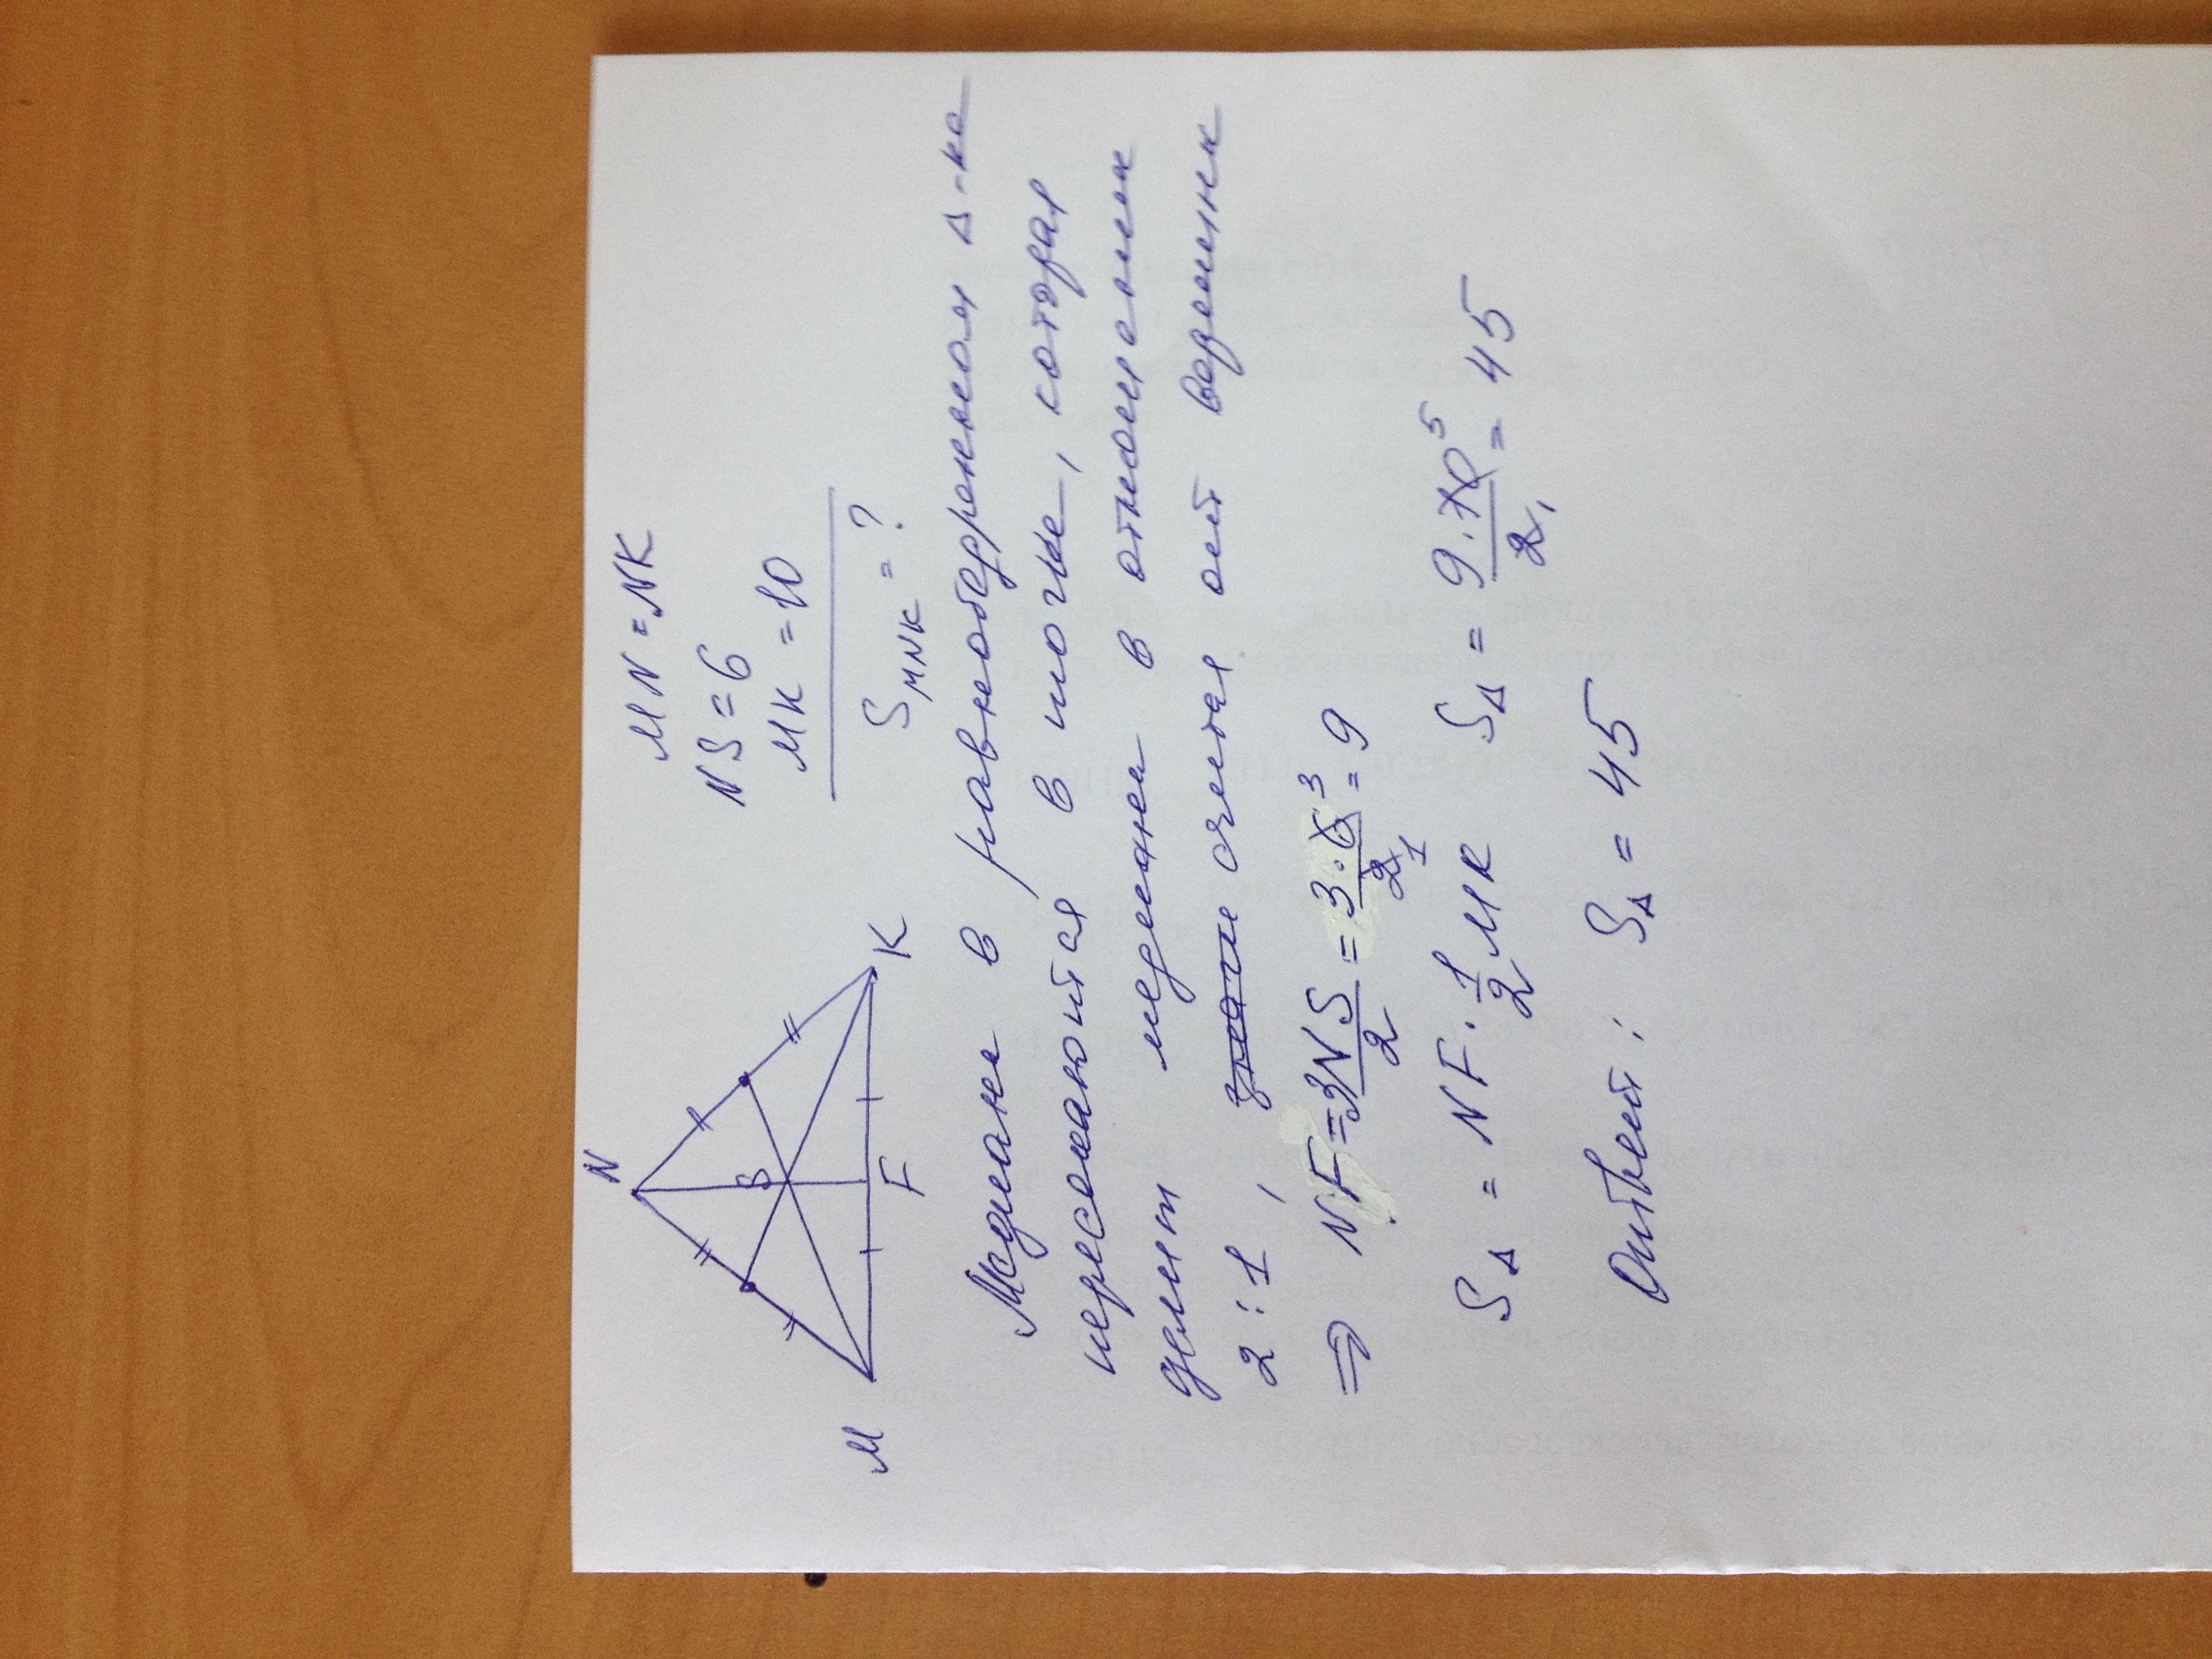 N
S
M
F
K
MN = NK
NS = 6
MK = 10
S MNK = ?
Медианы в равнобедренном Δ-ке
пересекаются в точке, которая
делит медианы в отношении
2 : 1, считая от вершины
⇒ NF = 3NS/2 = 3·6/2 = 9
SΔ = NF · 1/2 MK SΔ = 9·10/2 = 45
Ответ: SΔ = 45